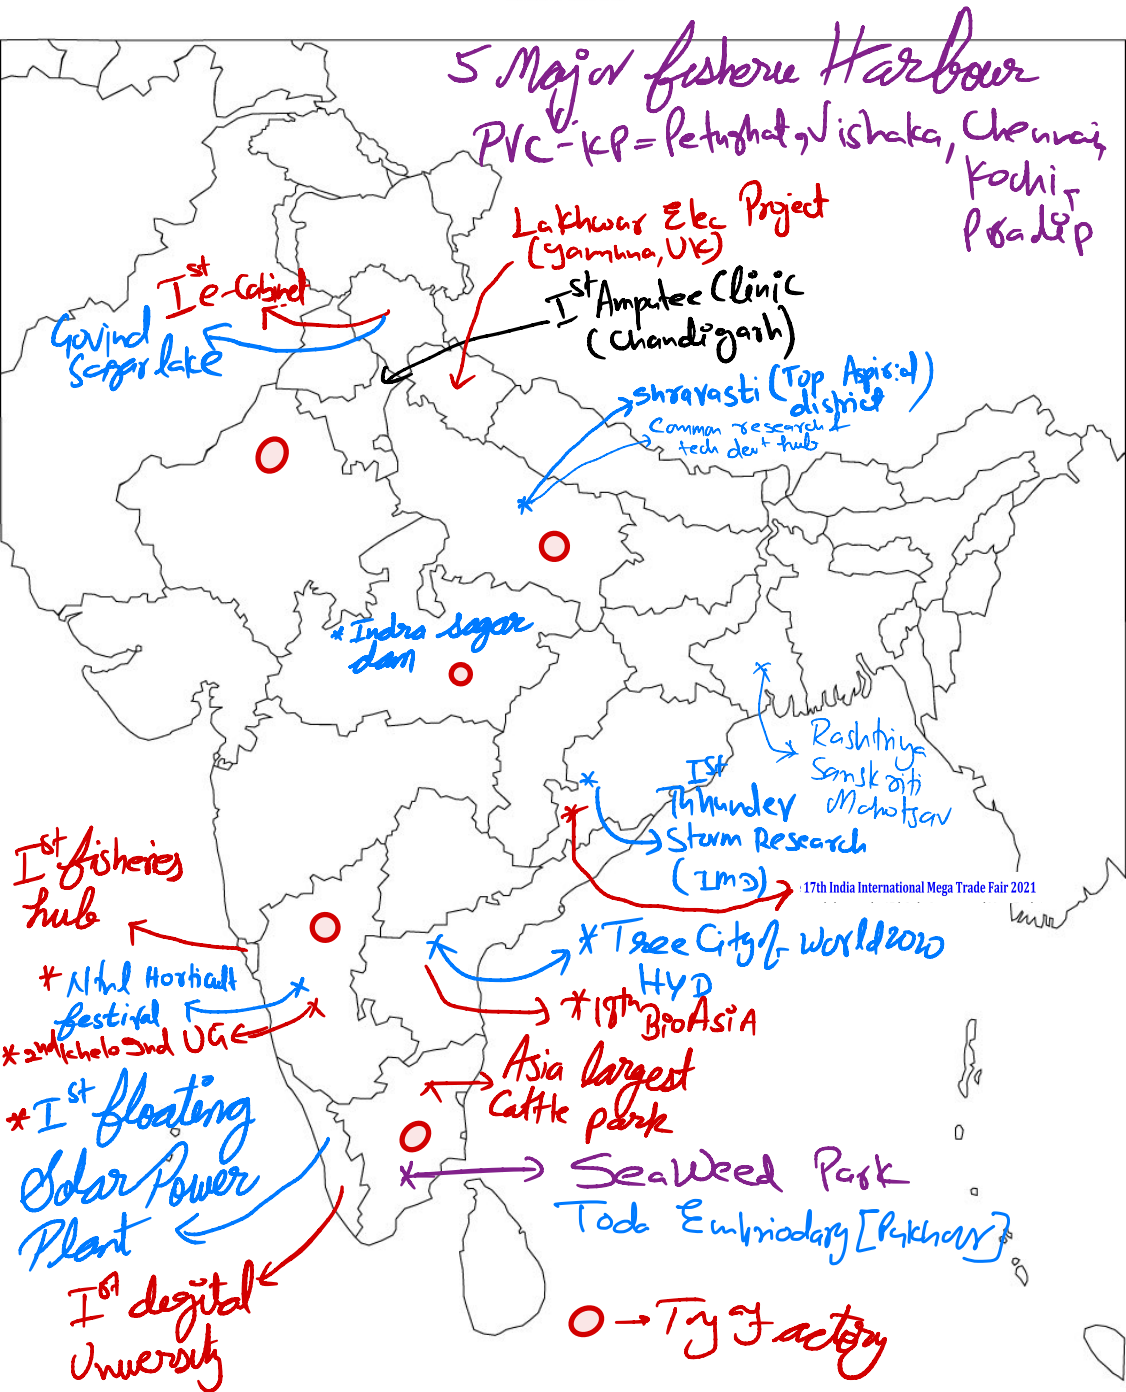 5 Major fisherie Harbour
PVC-KP = Petughat, Vishaka, Chennai,
Kochi,
Pradip
Lakhwar Elec Project
(Yamuna, UK)
Ist e-Cabinet
Ist Amputee Clinic
(Chandigarh)
Govind
Sagar lake
Shravasti (Top Aspirid
district)
Common research &
tech devt hub
* Indra Sagar
dam
Rashtriya
Sanskriti
Mahotsav
Ist
Thhunder
Storm Research
(IMD)
17th India International Mega Trade Fair 2021
Ist fisheries
hub
* Tree City of world 2020
HYD
* Ntnl Horticult
festival
* 18th
BioAsiA
* 2nd Khelo Ind UG
Asia largest
Cattle Park
* Ist floating
Solar Power
Plant
SeaWeed Park
Toda Embriodary [Pukhoor]
Ist degital
University
→ Toy Factory